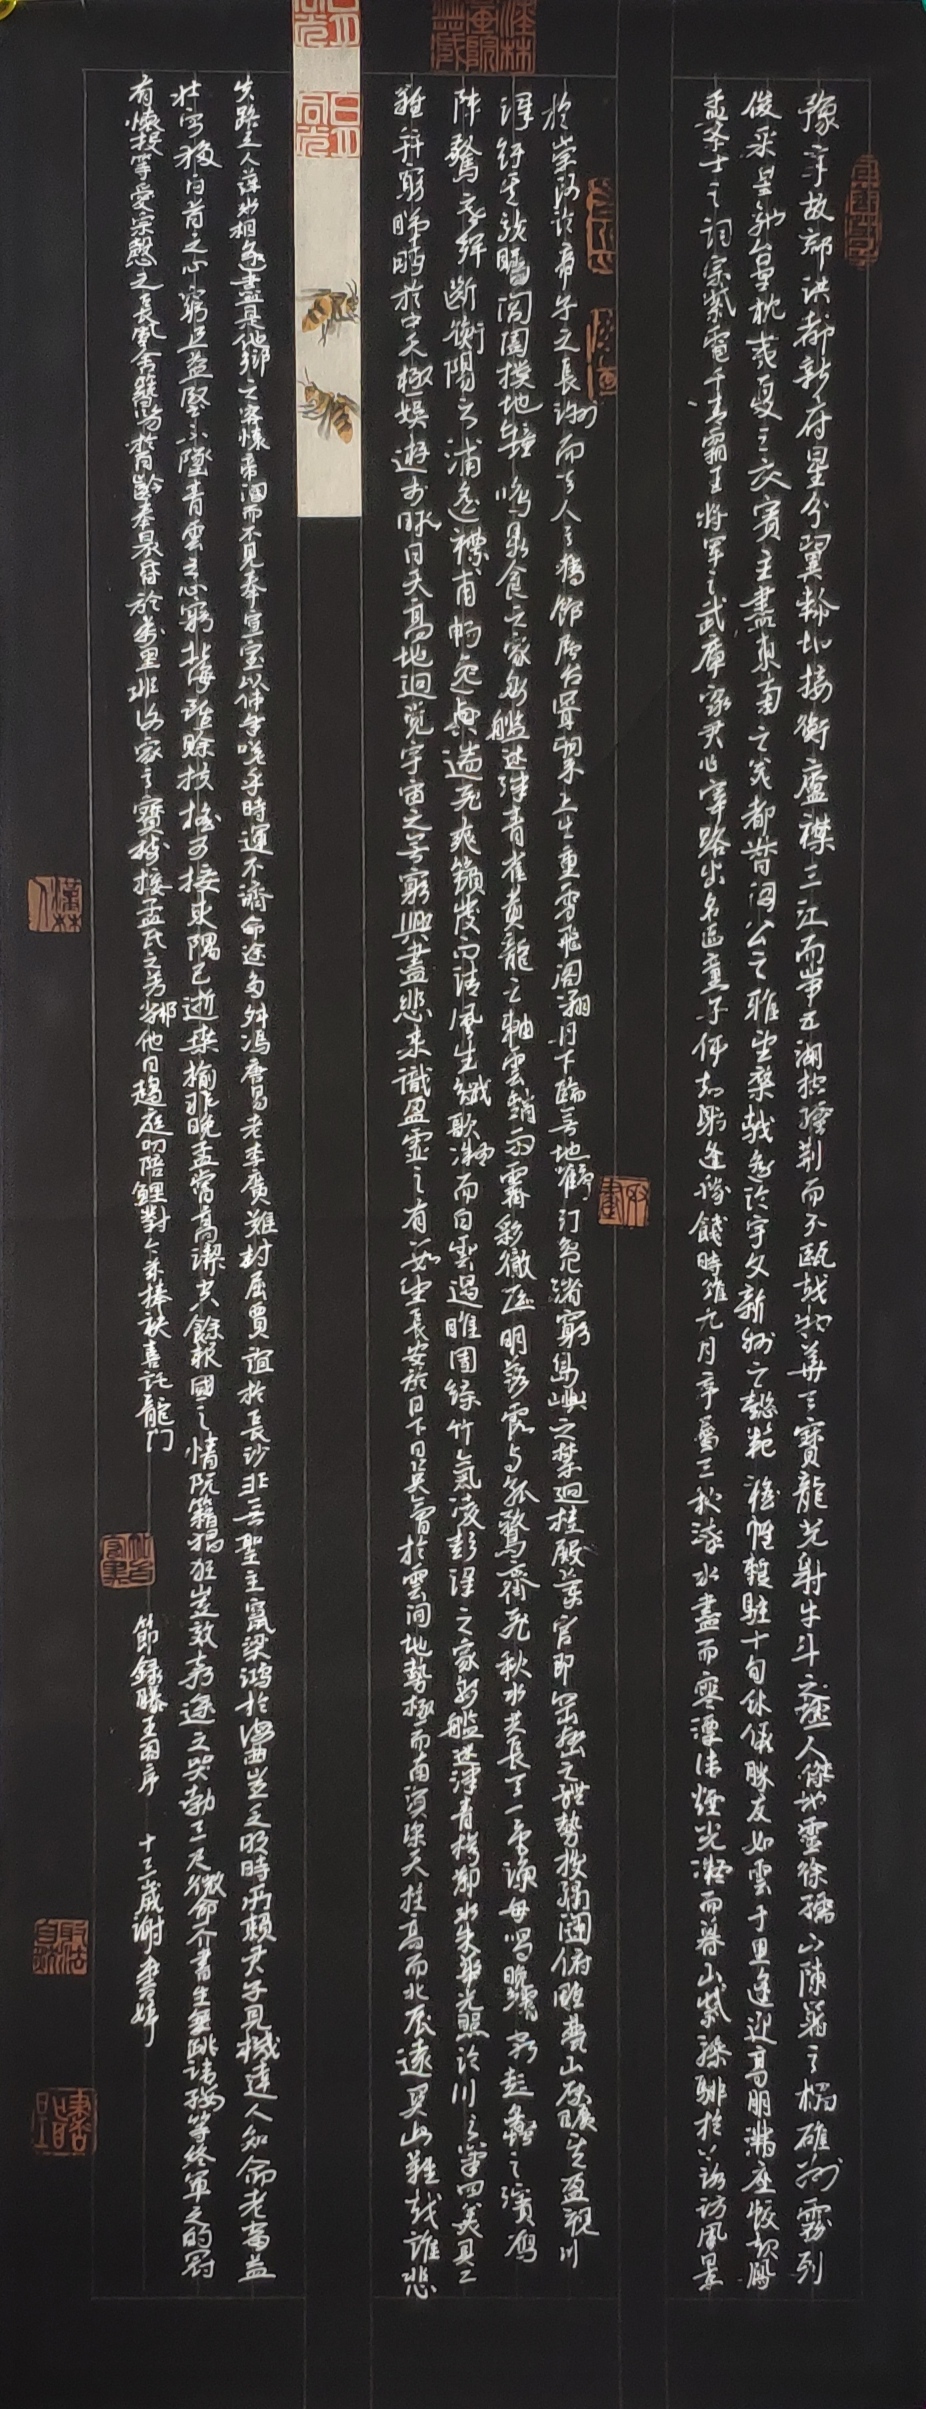 豫章故郡洪都新府星分翼軫地接衡廬襟三江而帶五湖控蠻荆而引甌越物華天寶龍光射牛斗之墟人傑地靈徐孺下陳蕃之榻雄州霧列
俊采星馳臺隍枕夷夏之交賓主盡東南之美都督閻公之雅望棨戟遥臨宇文新州之懿範襜帷暫駐十旬休假勝友如雲千里逢迎高朋滿座騰蛟起鳳
孟學士之詞宗紫電青霜王將軍之武庫家君作宰路出名區童子何知躬逢勝餞時維九月序屬三秋潦水盡而寒潭清煙光凝而暮山紫儼驂騑於上路訪風景
於崇阿臨帝子之長洲得天人之舊館層臺聳翠上出重霄飛閣翔丹下臨無地鶴汀鳧渚窮島嶼之縈迴桂殿蘭宫即岡巒之體勢披繡闥俯雕甍山原曠其盈視川
澤紆其駭矚閭閻撲地鐘鳴鼎食之家舸艦迷津青雀黄龍之軸雲銷雨霽彩徹區明落霞與孤鶩齊飛秋水共長天一色漁舟唱晚響窮彭蠡之濱雁
陣驚寒聲斷衡陽之浦遥襟甫暢逸興遄飛爽籟發而清風生纖歌凝而白雲遏睢園緑竹氣凌彭澤之家舸艦迷津青樽鄴水朱華光照臨川之筆四美具二
難并窮睇眄於中天極娱遊於暇日天高地迥覺宇宙之無窮興盡悲來識盈虚之有數望長安於日下目吴會於雲間地勢極而南溟深天柱高而北辰遠關山難越誰悲
失路之人萍水相逢盡是他鄉之客懷帝閽而不見奉宣室以何年嗟乎時運不濟命途多舛馮唐易老李廣難封屈賈誼於長沙非無聖主竄梁鴻於海曲豈乏明時所賴君子見機達人知命老當益
壯寧移白首之心窮且益堅不墜青雲之志北海雖賒扶摇可接東隅已逝桑榆非晚孟嘗高潔空餘報國之情阮籍猖狂豈效窮途之哭勃三尺微命一介書生無路請纓等終軍之弱冠
有懷投筆愛宗慤之長風舍簪笏於百齡奉晨昏於萬里非謝家之寶樹接孟氏之芳鄰他日趨庭叨陪鯉對今兹捧袂喜託龍門
節録滕王閣序 十三歲謝